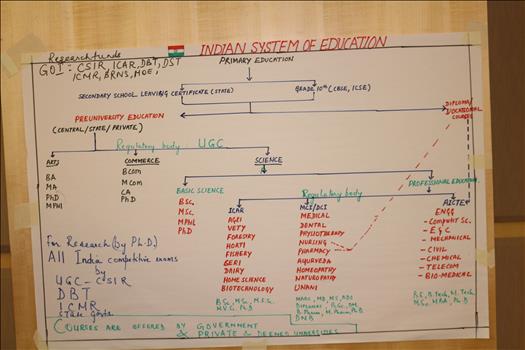 INDIAN SYSTEM OF EDUCATION
Research funds
GOI: CSIR, ICAR, DBT, DST
ICMR, BRNS, MOE,
PRIMARY EDUCATION
SECONDARY SCHOOL LEAVING CERTIFICATE (STATE)
GRADE 10th (CBSE, ICSE)
PREUNIVERSITY EDUCATION
(CENTRAL/STATE/PRIVATE)
DIPLOMA/
VOCATIONAL
COURSES
Regulatory body UGC
ARTS
BA
MA
PhD
MPHl
COMMERCE
BCOM
MCOM
CA
PhD
SCIENCE
BASIC SCIENCE
BSc
MSc
MPHl
PhD
PROFESSIONAL EDUCATION
Regulatory body
ICAR
AGRI
VETY
FORESTRY
HORTI
FISHERY
SERI
DAIRY
HOME SCIENCE
BIOTECHNOLOGY
MCI/DCI
MEDICAL
DENTAL
PHYSIOTHERAPY
NURSING
PHARMACY
AYURVEDA
HOMEOPATHY
NATUROPATHY
UNANI
AICTE
ENGG
- COMPUT SC.
- E & C
- MECHANICAL
- CIVIL
- CHEMICAL
- TELECOM
- BIO-MEDICAL
For Research (by Ph.D.)
All India competitive exams
by
UGC-CSIR
DBT
ICMR
State govts
BE, B.Tech, M.Tech
MSc, MBA, Ph.D
DNB
COURSES ARE OFFERED BY GOVERNMENT
& PRIVATE & DEEMED UNIVERSITIES